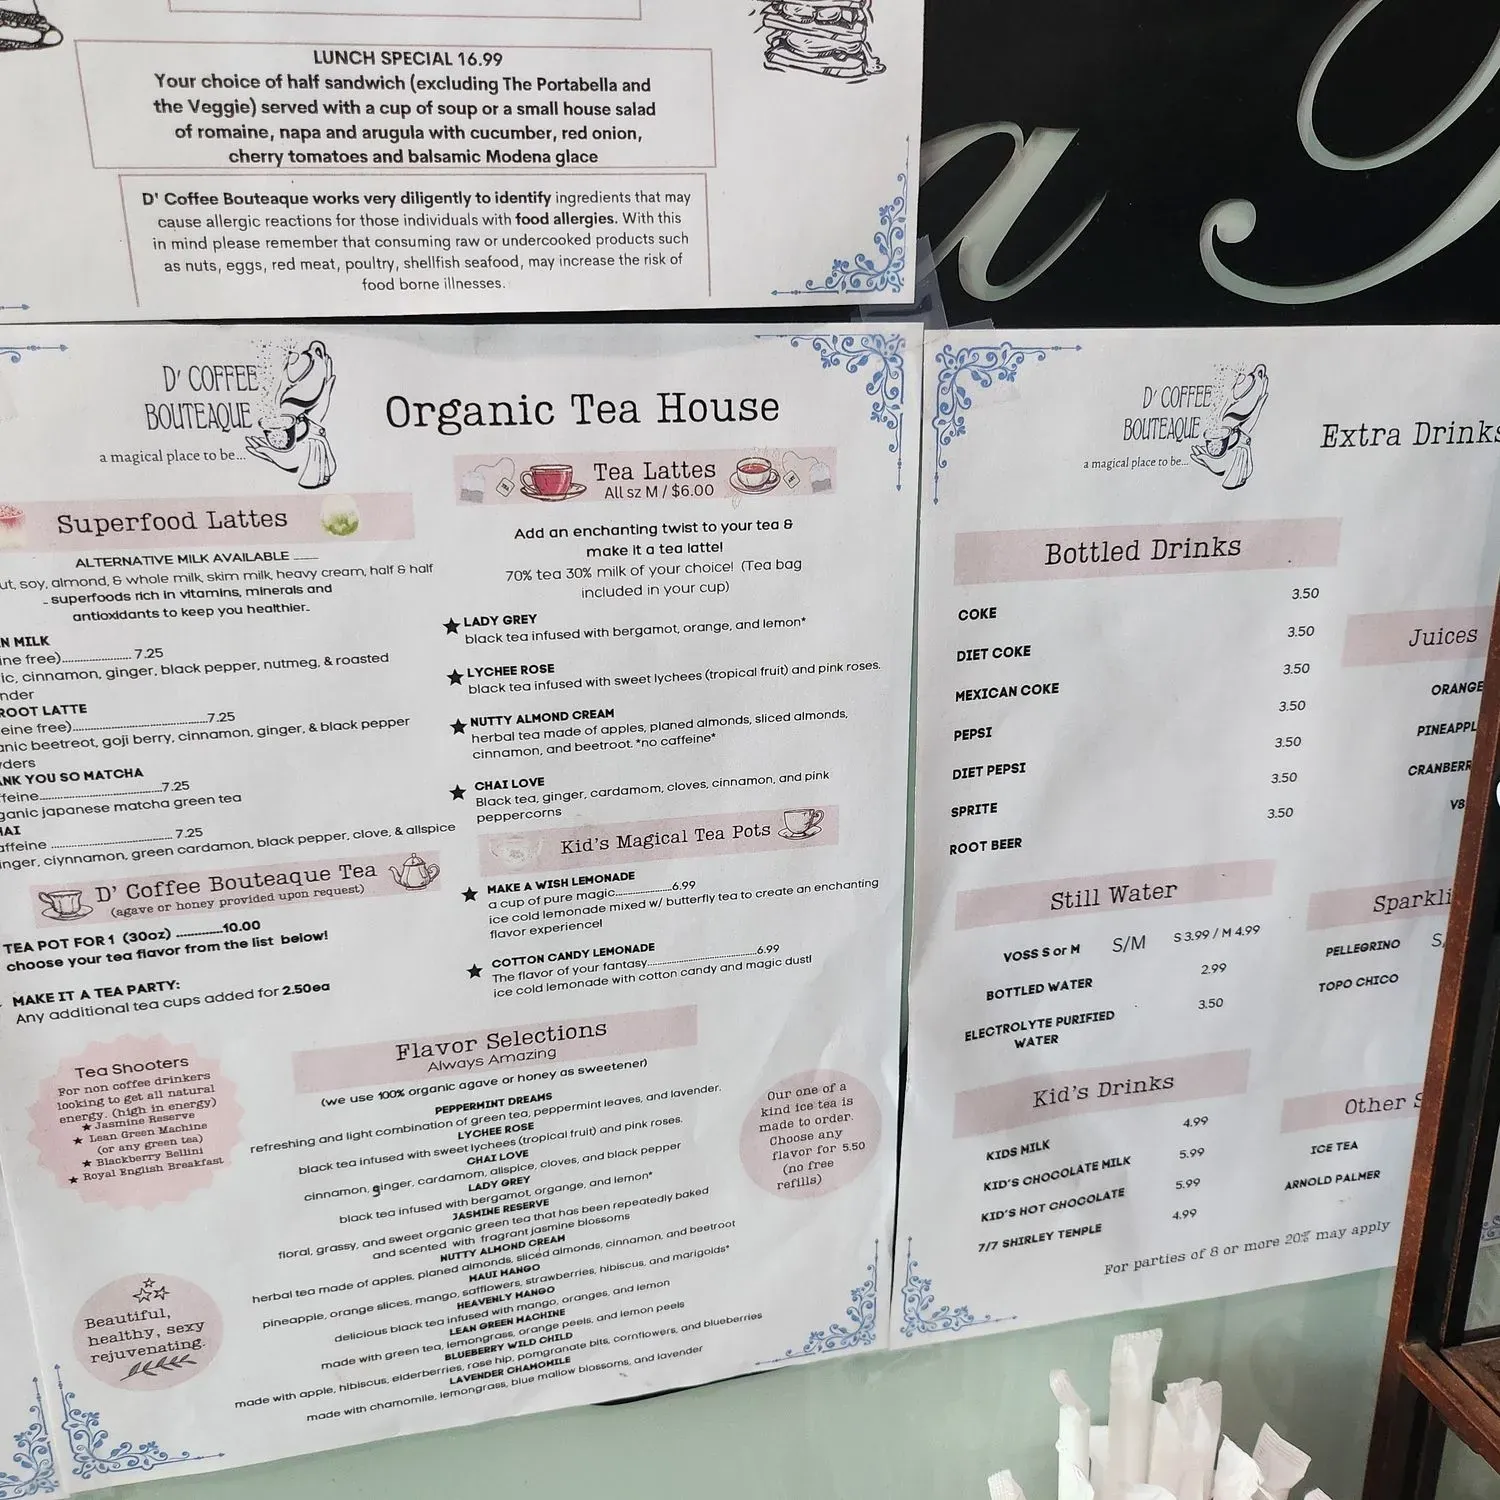 LUNCH SPECIAL 16.99
Your choice of half sandwich (excluding The Portabella and
the Veggie) served with a cup of soup or a small house salad
of romaine, napa and arugula with cucumber, red onion,
cherry tomatoes and balsamic Modena glace
D' Coffee Bouteaque works very diligently to identify ingredients that may
cause allergic reactions for those individuals with food allergies. With this
in mind please remember that consuming raw or undercooked products such
as nuts, eggs, red meat, poultry, shellfish seafood, may increase the risk of
food borne illnesses.
D' COFFEE
BOUTEAQUE
a magical place to be...
Organic Tea House
Superfood Lattes
ALTERNATIVE MILK AVAILABLE
ut, soy, almond, & whole milk, skim milk, heavy cream, half & half
- superfoods rich in vitamins, minerals and
antioxidants to keep you healthier-
N MILK
ine free)............ 7.25
ic, cinnamon, ginger, black pepper, nutmeg, & roasted
nder
ROOT LATTE
eine free)............7.25
anic beetreot, goji berry, cinnamon, ginger, & black pepper
ders
ANK YOU SO MATCHA
feine............7.25
ganic japanese matcha green tea
HAI
affeine............ 7.25
inger, ciynnamon, green cardamon, black pepper, clove, & allspice
D' Coffee Bouteaque Tea
(agave or honey provided upon request)
TEA POT FOR 1 (30oz) ............10.00
choose your tea flavor from the list below!
MAKE IT A TEA PARTY:
Any additional tea cups added for 2.50ea
Tea Shooters
For non coffee drinkers
looking to get all natural
energy. (high in energy)
★ Jasmine Reserve
★ Lean Green Machine
(or any green tea)
★ Blackberry Bellini
★ Royal English Breakfast
Beautiful,
healthy, sexy
rejuvenating.
Tea Lattes
All sz M / $6.00
Add an enchanting twist to your tea &
make it a tea latte!
70% tea 30% milk of your choice! (Tea bag
included in your cup)
★ LADY GREY
black tea infused with bergamot, orange, and lemon*
★ LYCHEE ROSE
black tea infused with sweet lychees (tropical fruit) and pink roses.
★ NUTTY ALMOND CREAM
herbal tea made of apples, planed almonds, sliced almonds,
cinnamon, and beetroot. *no caffeine*
★ CHAI LOVE
Black tea, ginger, cardamom, cloves, cinnamon, and pink
peppercorns
Kid's Magical Tea Pots
★ MAKE A WISH LEMONADE
a cup of pure magic............6.99
ice cold lemonade mixed w/ butterfly tea to create an enchanting
flavor experience!
★ COTTON CANDY LEMONADE
The flavor of your fantasy............6.99
ice cold lemonade with cotton candy and magic dust!
Flavor Selections
Always Amazing
(we use 100% organic agave or honey as sweetener)
PEPPERMINT DREAMS
refreshing and light combination of green tea, peppermint leaves, and lavender.
LYCHEE ROSE
black tea infused with sweet lychees (tropical fruit) and pink roses.
CHAI LOVE
cinnamon, ginger, cardamom, allspice, cloves, and black pepper
LADY GREY
black tea infused with bergamot, organge, and lemon*
JASMINE RESERVE
floral, grassy, and sweet organic green tea that has been repeatedly baked
and scented with fragrant jasmine blossoms
NUTTY ALMOND CREAM
herbal tea made of apples, planed almonds, sliced almonds, cinnamon, and beetroot
MAUI MANGO
pineapple, orange slices, mango, safflowers, strawberries, hibiscus, and marigolds*
HEAVENLY MANGO
delicious black tea infused with mango, oranges, and lemon
LEAN GREEN MACHINE
made with green tea, lemongrass, orange peels, and lemon peels
BLUEBERRY WILD CHILD
made with apple, hibiscus, elderberries, rose hip, pomgranate bits, cornflowers, and blueberries
LAVENDER CHAMOMILE
made with chamomile, lemongrass, blue mallow blossoms, and lavender
Our one of a
kind ice tea is
made to order.
Choose any
flavor for 5.50
(no free
refills)
D' COFFEE
BOUTEAQUE
a magical place to be...
Extra Drinks
Bottled Drinks
COKE 3.50
DIET COKE 3.50
MEXICAN COKE 3.50
PEPSI 3.50
DIET PEPSI 3.50
SPRITE 3.50
ROOT BEER 3.50
Juices
ORANGE
PINEAPPL
CRANBERR
V8
Still Water
VOSS S or M S/M S 3.99 / M 4.99
BOTTLED WATER 2.99
ELECTROLYTE PURIFIED
WATER 3.50
Sparkli
PELLEGRINO S/
TOPO CHICO
Kid's Drinks
KIDS MILK 4.99
KID'S CHOCOLATE MILK 5.99
KID'S HOT CHOCOLATE 5.99
7/7 SHIRLEY TEMPLE 4.99
Other S
ICE TEA
ARNOLD PALMER
For parties of 8 or more 20% may apply